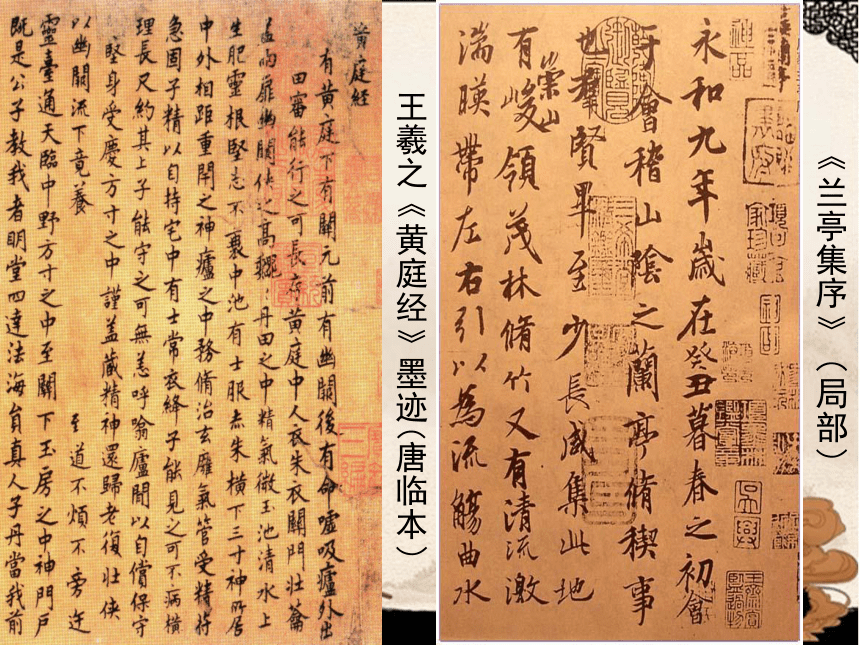 《兰亭集序》（局部）
永和九年歲在癸丑暮春之初會
于會稽山陰之蘭亭脩稧事
也羣賢畢至少長咸集此地
有崇山峻領茂林脩竹又有清流激
湍暎帶左右引以為流觴曲水
王羲之《黄庭经》墨迹（唐临本）
黄庭经
有黄庭下有關元前有幽闕後有命嘘吸廬外出
田審能行之可長存黄庭中人衣朱衣關門壯籥
盖兩扉幽闕侠之高巍丹田之中精氣微玉池清水上
生肥靈根堅志不衰中池有士服赤朱横下三寸神所居
中外相距重閉之神廬之中務脩治玄廱氣管受精符
急固子精以自持宅中有士常衣絳子能見之可不病横
理長尺約其上子能守之可無恙呼噏廬間以自償保守
堅身受慶方寸之中謹盖藏精神還歸老復壯侠
以幽闕流下竟養 至道不煩不旁迕
靈臺通天臨中野方寸之中至關下玉房之中神門戶
既是公子教我者明堂四達法海員真人子丹當我前